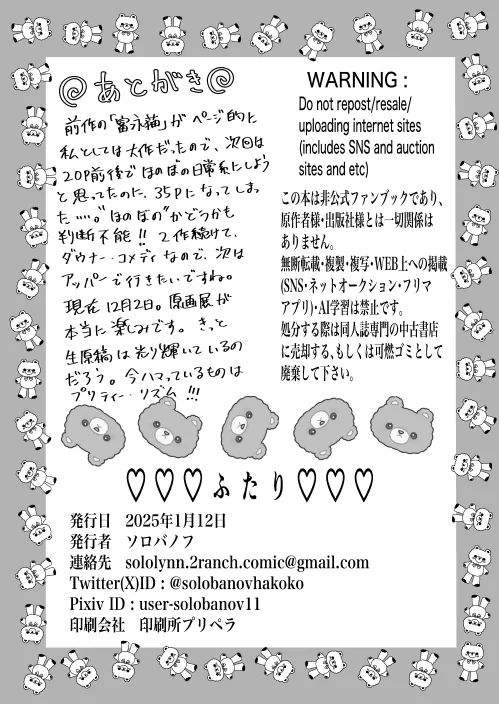 あとがき
前作の「富江猫」がページ的に
私としては大作だったので、次回は
20P前後でほのぼの日常系にしよう
と思ってたのに、35Pになってしまっ
た……。"ほのぼの"かどうかも
判断不能!! 2作続けて、
ダウナー・コメディなので、次は
アッパーで行きたいですね。
現在12月2日。原画展が
本当に楽しみです。きっと
生原稿は光り輝いているの
だろう。今ハマっているものは
プリティー・リズム!!!
WARNING :
Do not repost/resale/
uploading internet sites
(includes SNS and auction
sites and etc)
この本は非公式ファンブックであり、
原作者様・出版社様とは一切関係は
ありません。
無断転載・複製・複写・WEB上への掲載
(SNS・ネットオークション・フリマ
アプリ)・AI学習は禁止です。
処分する際は同人誌専門の中古書店
に売却する、もしくは可燃ゴミとして
廃棄して下さい。
♡♡♡ふたり♡♡♡
発行日 2025年1月12日
発行者 ソロバノフ
連絡先 sololynn.2ranch.comic@gmail.com
Twitter(X)ID : @solobanovhakoko
Pixiv ID : user-solobanov11
印刷会社 印刷所プリペラ